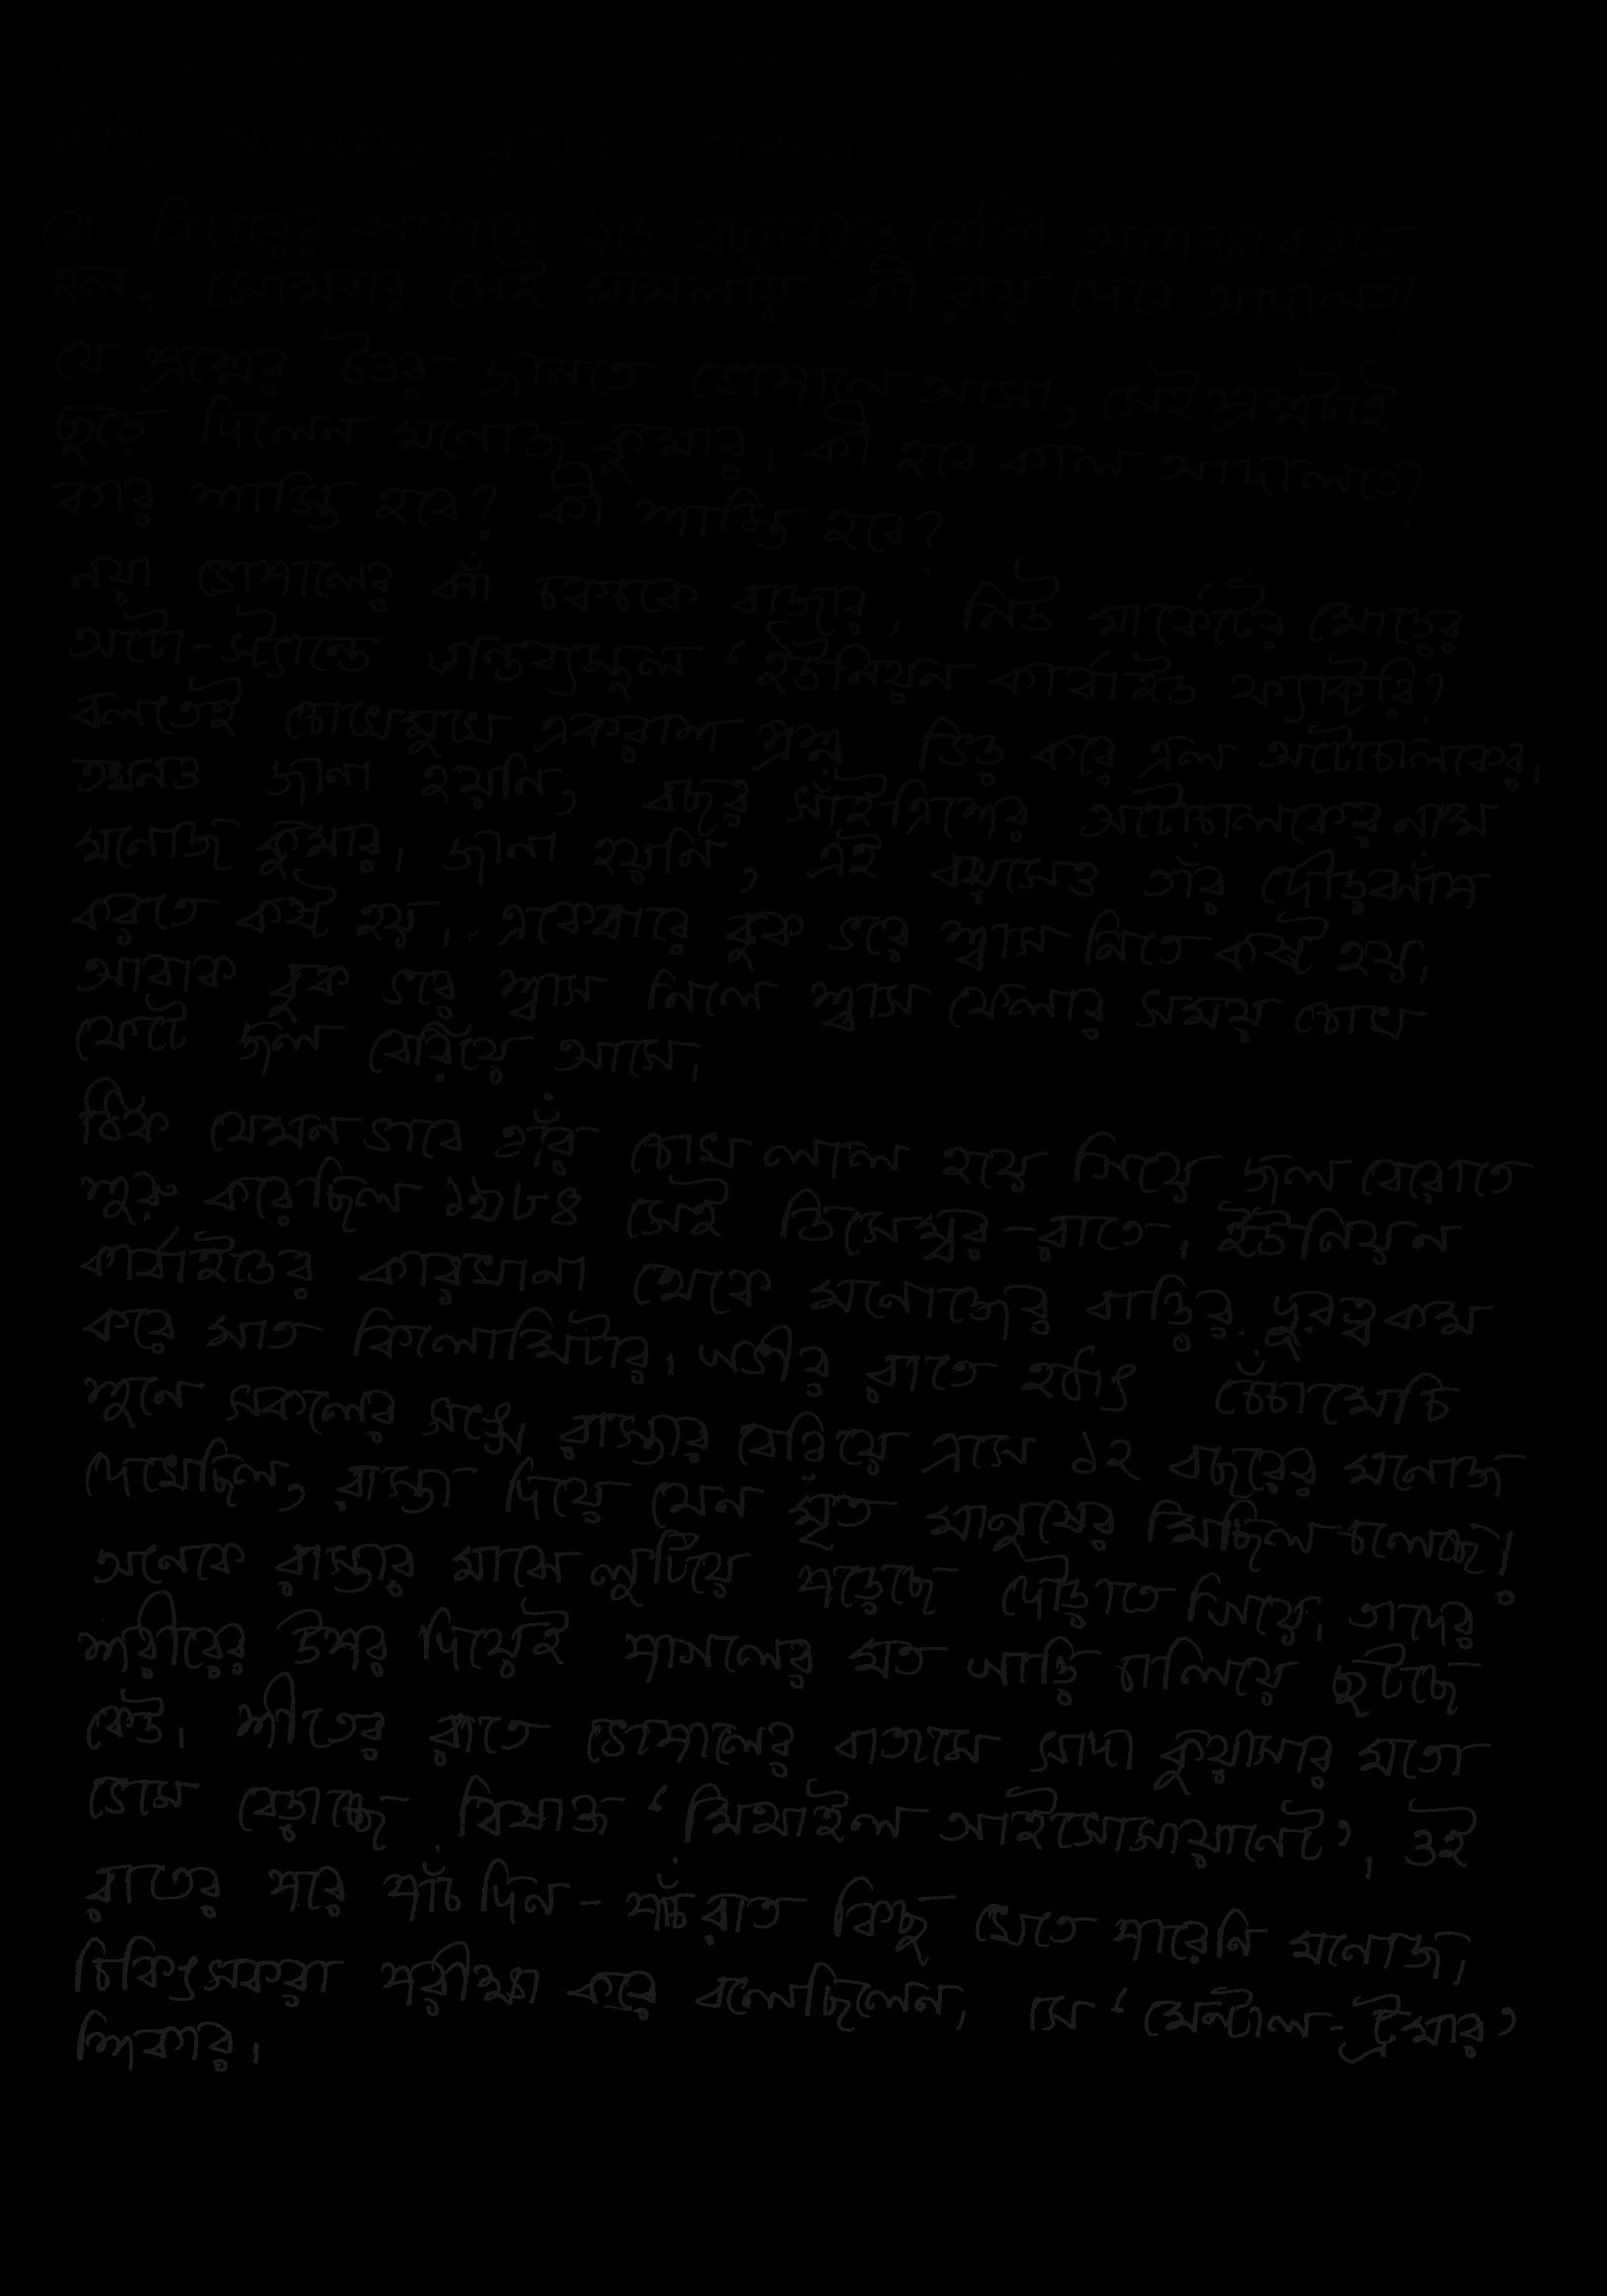 কাটার অপেক্ষায় রয়েছে ভোপাল।
যে বিচারের আশায় ২৫ বছরেরও বেশি অপেক্ষা করতে
হল, সোমবার সেই মামলায় কী রায় দেবে আদালত?
যে প্রশ্নের উত্তর জানতে ভোপালে আসা, সেই প্রশ্নটাই
ছুড়ে দিলেন মনোজ কুমার। কী হবে কাল আদালতে?
কার শাস্তি হবে? কী শাস্তি হবে?
নয়া ভোপালের ঝাঁ চকচকে বাজার, নিউ মার্কেটের মোড়ের
অটো-স্ট্যান্ডে গন্তব্যস্থল ‘ইউনিয়ন কার্বাইড ফ্যাক্টরি’
বলতেই চোখেমুখে একরাশ প্রশ্ন ভিড় করে এল অটোচালকের।
তখনও জানা হয়নি, বছর সাঁইত্রিশের অটোচালকের নাম
মনোজ কুমার। জানা হয়নি, এই বয়সেও তাঁর দৌড়ঝাঁপ
করতে কষ্ট হয়। একেবারে বুক ভরে শ্বাস নিতে কষ্ট হয়।
আবাক বুক ভরে শ্বাস নিলে শ্বাস ফেলার সময় চোখ
ফেটে জল বেরিয়ে আসে।
ঠিক যেমন ভাবে তাঁর চোখ লাল হয়ে গিয়ে জল বেরোতে
শুরু করেছিল ১৯৮৪ সেই ডিসেম্বর-রাতে। ইউনিয়ন
কার্বাইডের কারখানা থেকে মনোজের বাড়ির দূরত্ব কম
করে সাত কিলোমিটার। গভীর রাতে হঠাৎ চেঁচামেচি
শুনে সকলের সঙ্গে রাস্তার বেরিয়ে এসে ১২ বছরের মনোজ
দেখেছিল, রাস্তা দিয়ে যেন মৃত মানুষের মিছিল চলেছে।
অনেকে রাস্তার মাঝে লুটিয়ে পড়েছে দৌড়াতে গিয়ে। তাদের
শরীরের উপর দিয়েই পাগলের মত গাড়ি চালিয়ে ছুটছে
কেউ। শীতের রাতে ভোপালের বাতাসে সাদা কুয়াসার মতো
ভেসে বেড়াচ্ছে বিষাক্ত ‘মিথাইল আইসোসায়ানেট’। ওই
রাতের পরে পাঁচ দিন-পাঁচ রাত কিছু খেতে পারেনি মনোজ।
চিকিৎসকরা পরীক্ষা করে বলেছিলেন, সে ‘মেন্টাল-ট্রমার’
শিকার।